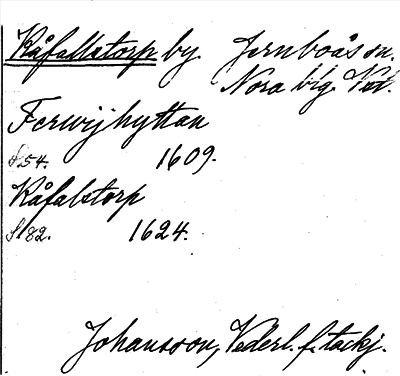 Kåfallstorp by. Jernboås sn.
Nora bg. Vst.
Ferwijhyttan
S. 54. 1609.
Kåfalstorp
S. 82. 1624.
Johansson, Vederl. f. tackj.